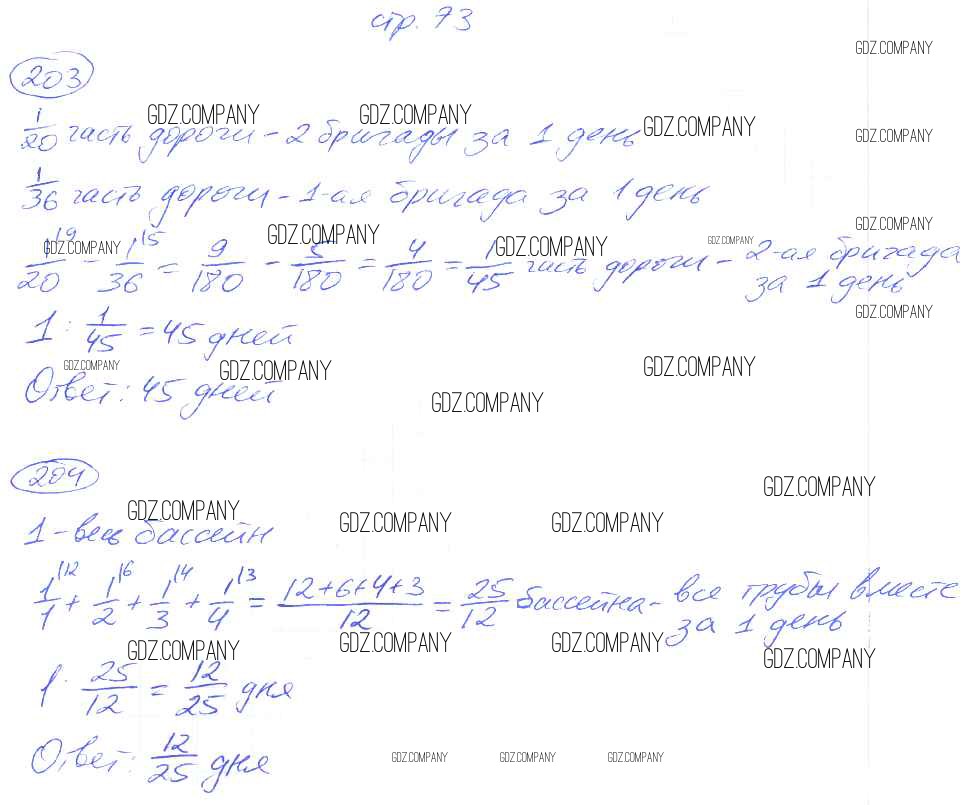 стр. 73
GDZ.COMPANY
203
GDZ.COMPANY GDZ.COMPANY GDZ.COMPANY GDZ.COMPANY
1/20 часть дороги - 2 бригады за 1 день
1/36 часть дороги - 1-ая бригада за 1 день
GDZ.COMPANY GDZ.COMPANY GDZ.COMPANY GDZ.COMPANY GDZ.COMPANY
1/20 |9 - 1/36 |5 = 9/180 - 5/180 = 4/180 = 1/45 часть дороги - 2-ая бригада
за 1 день
GDZ.COMPANY
1 : 1/45 = 45 дней
GDZ.COMPANY GDZ.COMPANY GDZ.COMPANY
Ответ: 45 дней
GDZ.COMPANY
204
GDZ.COMPANY
GDZ.COMPANY GDZ.COMPANY GDZ.COMPANY
1 - весь бассейн
1/1 |12 + 1/2 |6 + 1/3 |4 + 1/4 |3 = 12+6+4+3/12 = 25/12 бассейна - все трубы вместе
за 1 день
GDZ.COMPANY GDZ.COMPANY GDZ.COMPANY GDZ.COMPANY
1 : 25/12 = 12/25 дня
Ответ: 12/25 дня
GDZ.COMPANY GDZ.COMPANY GDZ.COMPANY